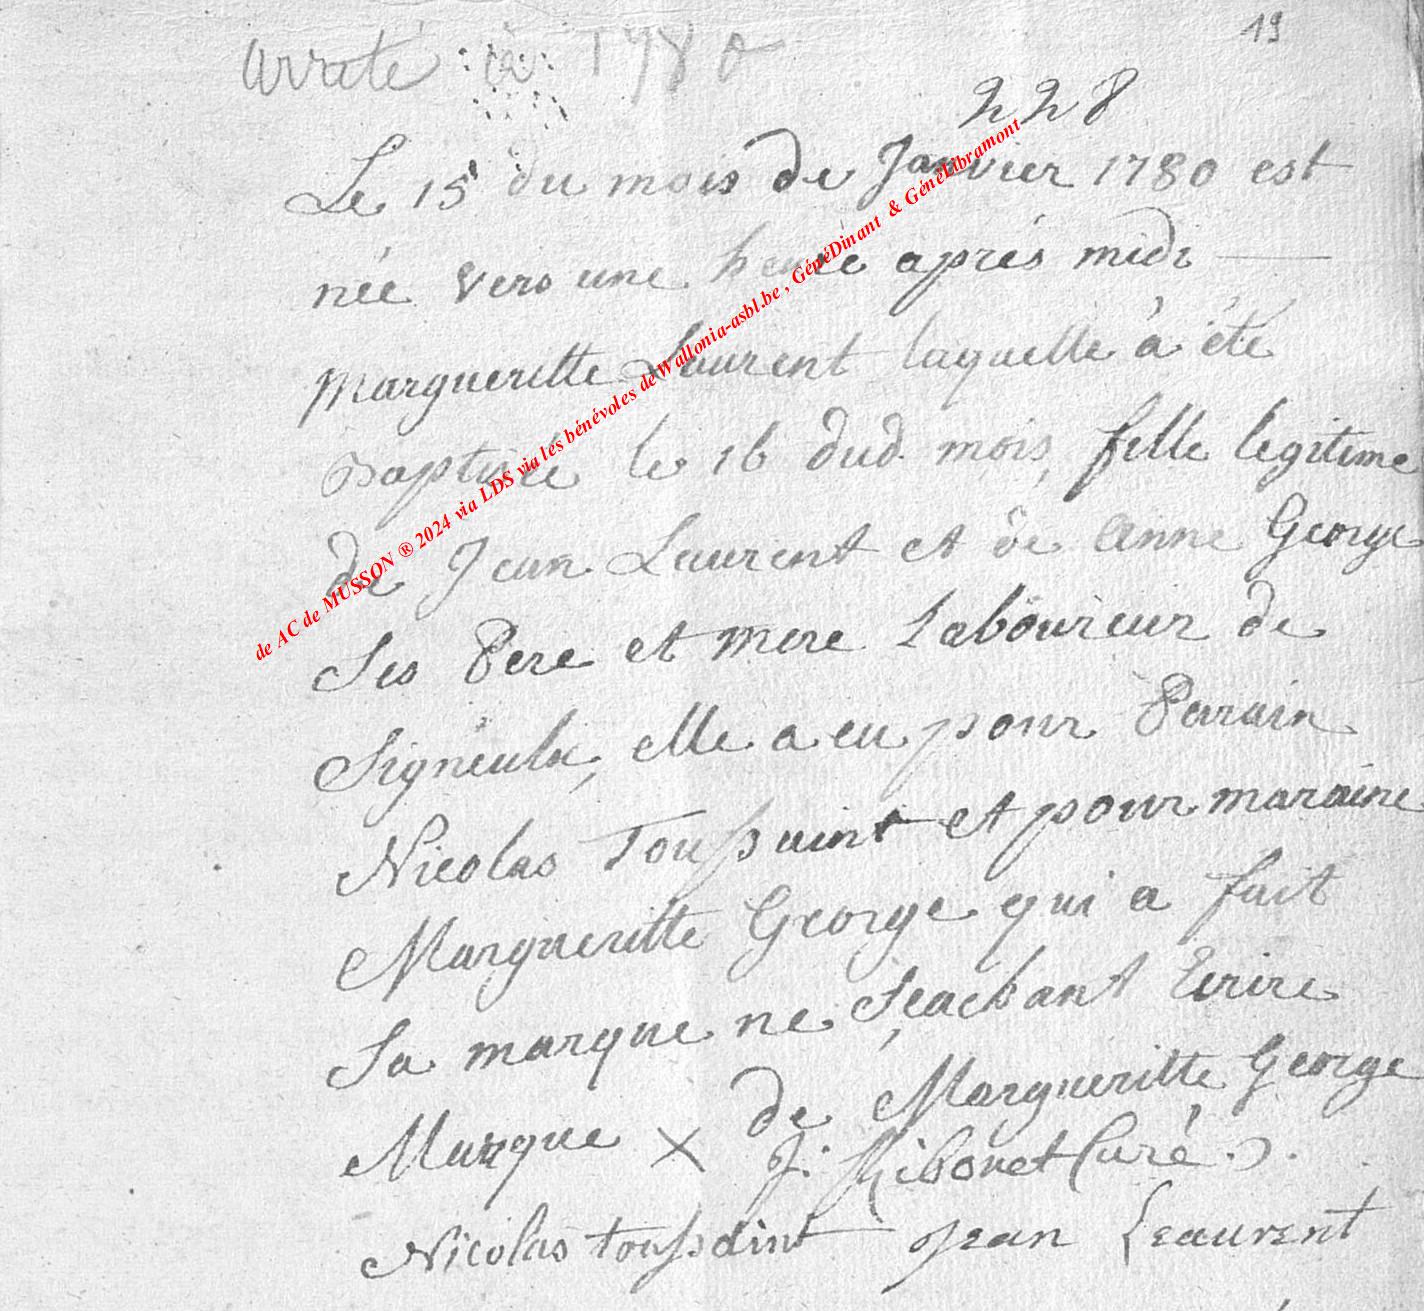 19
arrete à 1780
228
Le 15 du mois de Janvier 1780 est
née vers une heure aprés midi
Margueritte Laurent laquelle à été
Baptisée le 16 dud. mois, fille legitime
de Jean Laurent et de Anne George
Ses Pere et mere Laboureur de
Signeulx, elle a eu pour Parain
Nicolas Toussaint et pour maraine
Margueritte George qui a fait
Sa marque ne Sçachant Ecrire
Marque X de Margueritte George
J: Curé
Nicolas toussaint jean Leaurent
de AC de MUSSON ® 2024 via LDS via les bénévoles de Wallonia-asbl.be , GénéDinant & GénéLibramont